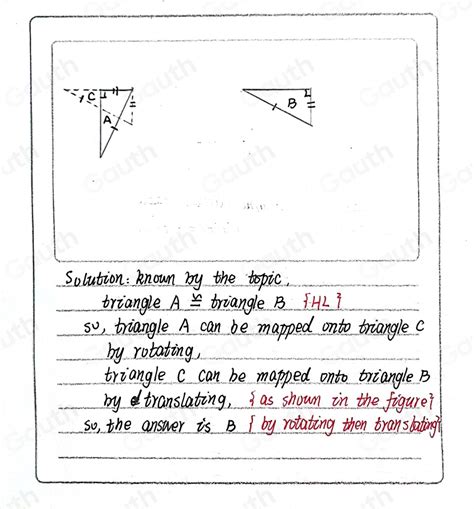 C
A
B
Solution: known by the topic,
triangle A ≅ triangle B {HL}
so, triangle A can be mapped onto triangle C
by rotating,
triangle C can be mapped onto triangle B
by translating, {as shown in the figure}
so, the answer is B {by rotating then translating}
Gauth